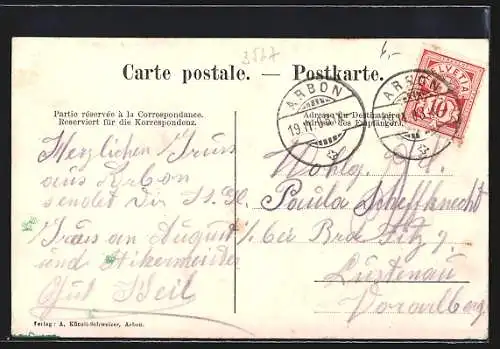 3577
1,-
Carte postale. — Postkarte.
Partie réservée à la Correspondance.
Reserviert für die Korrespondenz.
Adresse du Destinataire.
Adresse des Empfängers.
ARBON
19.II
ARBON
HELVETIA
10
Herzlichen Gruss
aus Arbon
sendet Dir
Gruss an August
und
Gut Heil
Wohlg.
Paula Scheffknecht
bei
Lustenau
Vorarlberg
Verlag: A. Künzli-Schweizer, Arbon.